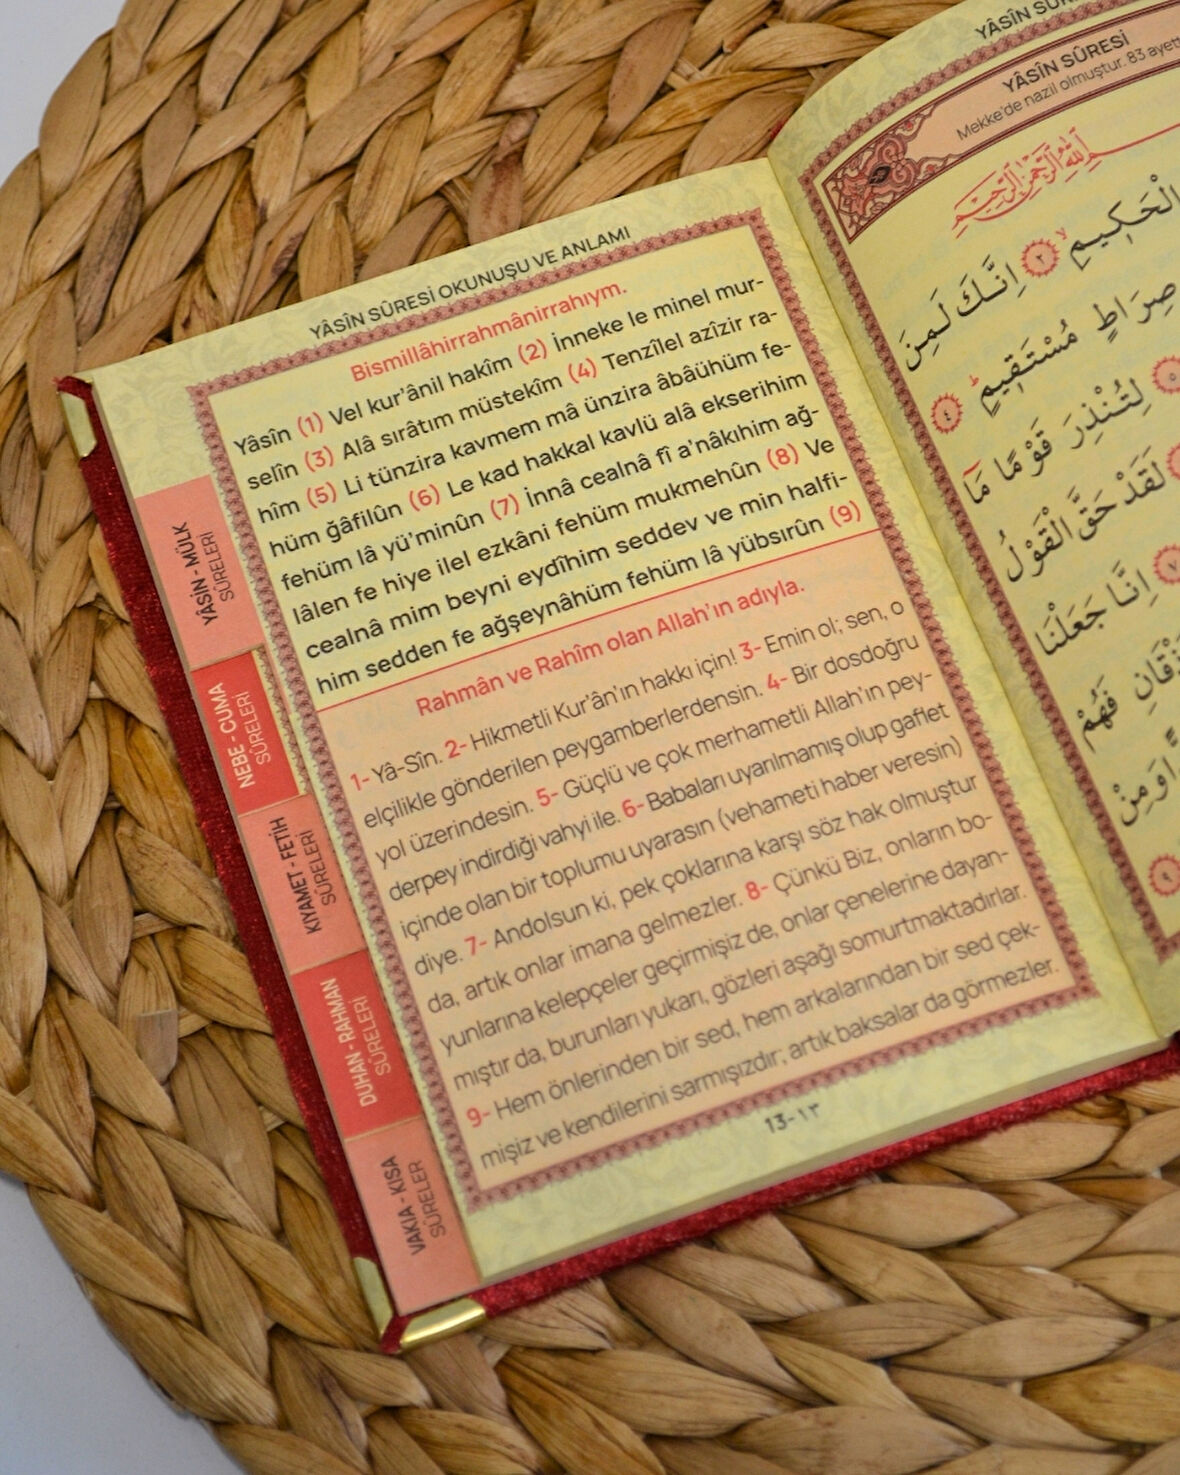 YÂSÎN SÛRESİ OKUNUŞU VE ANLAMI
Bismillâhirrahmânirrahıym.
Yâsîn (1) Vel kur’ânil hakîm (2) İnneke le minel mur-
selîn (3) Alâ sırâtım müstekîm (4) Tenzîlel azîzir ra-
hîm (5) Li tünzira kavmem mâ ünzira âbâühüm fe-
hüm ğâfilûn (6) Le kad hakkal kavlü alâ ekserihim
fehüm lâ yü’minûn (7) İnnâ cealnâ fî a’nâkıhim ağ-
lâlen fe hiye ilel ezkâni fehüm mukmehûn (8) Ve
cealnâ mim beyni eydîhim seddev ve min halfi-
him sedden fe ağşeynâhüm fehüm lâ yübsırûn (9)
Rahmân ve Rahîm olan Allah’ın adıyla.
1- Yâ-Sîn. 2- Hikmetli Kur’ân’ın hakkı için! 3- Emin ol; sen, o
elçilikle gönderilen peygamberlerdensin. 4- Bir dosdoğru
yol üzerindesin. 5- Güçlü ve çok merhametli Allah’ın pey-
derpey indirdiği vahyi ile. 6- Babaları uyarılmamış olup gaflet
içinde olan bir toplumu uyarasın (vehameti haber veresin)
diye. 7- Andolsun ki, pek çoklarına karşı söz hak olmuştur
da, artık onlar imana gelmezler. 8- Çünkü Biz, onların bo-
yunlarına kelepçeler geçirmişiz de, onlar çenelerine dayan-
mıştır da, burunları yukarı, gözleri aşağı somurtmaktadırlar.
9- Hem önlerinden bir sed, hem arkalarından bir sed çek-
mişiz ve kendilerini sarmışızdır; artık baksalar da görmezler.
13-١٣
YÂSİN - MÜLK
SÛRELERİ
NEBE - CUMA
SÛRELERİ
KIYAMET - FETİH
SÛRELERİ
DUHAN - RAHMAN
SÛRELERİ
VAKIA - KISA
SÛRELER
YÂSÎN
YÂSÎN SÛRESİ
Mekke’de nazil olmuştur. 83 ayett
بِسْمِ اللّٰهِ الرَّحْمٰنِ الرَّحِيمِ
الْحَكِيمِ ﴿٢﴾ اِنَّكَ لَمِنَ
صِرَاطٍ مُسْتَقِيمٍ ﴿٤﴾
﴿٥﴾ لِتُنْذِرَ قَوْمًا مَا
لَقَدْ حَقَّ الْقَوْلُ
﴿٧﴾ اِنَّا جَعَلْنَا
فَهُمْ
وَمِنْ
﴿٩﴾